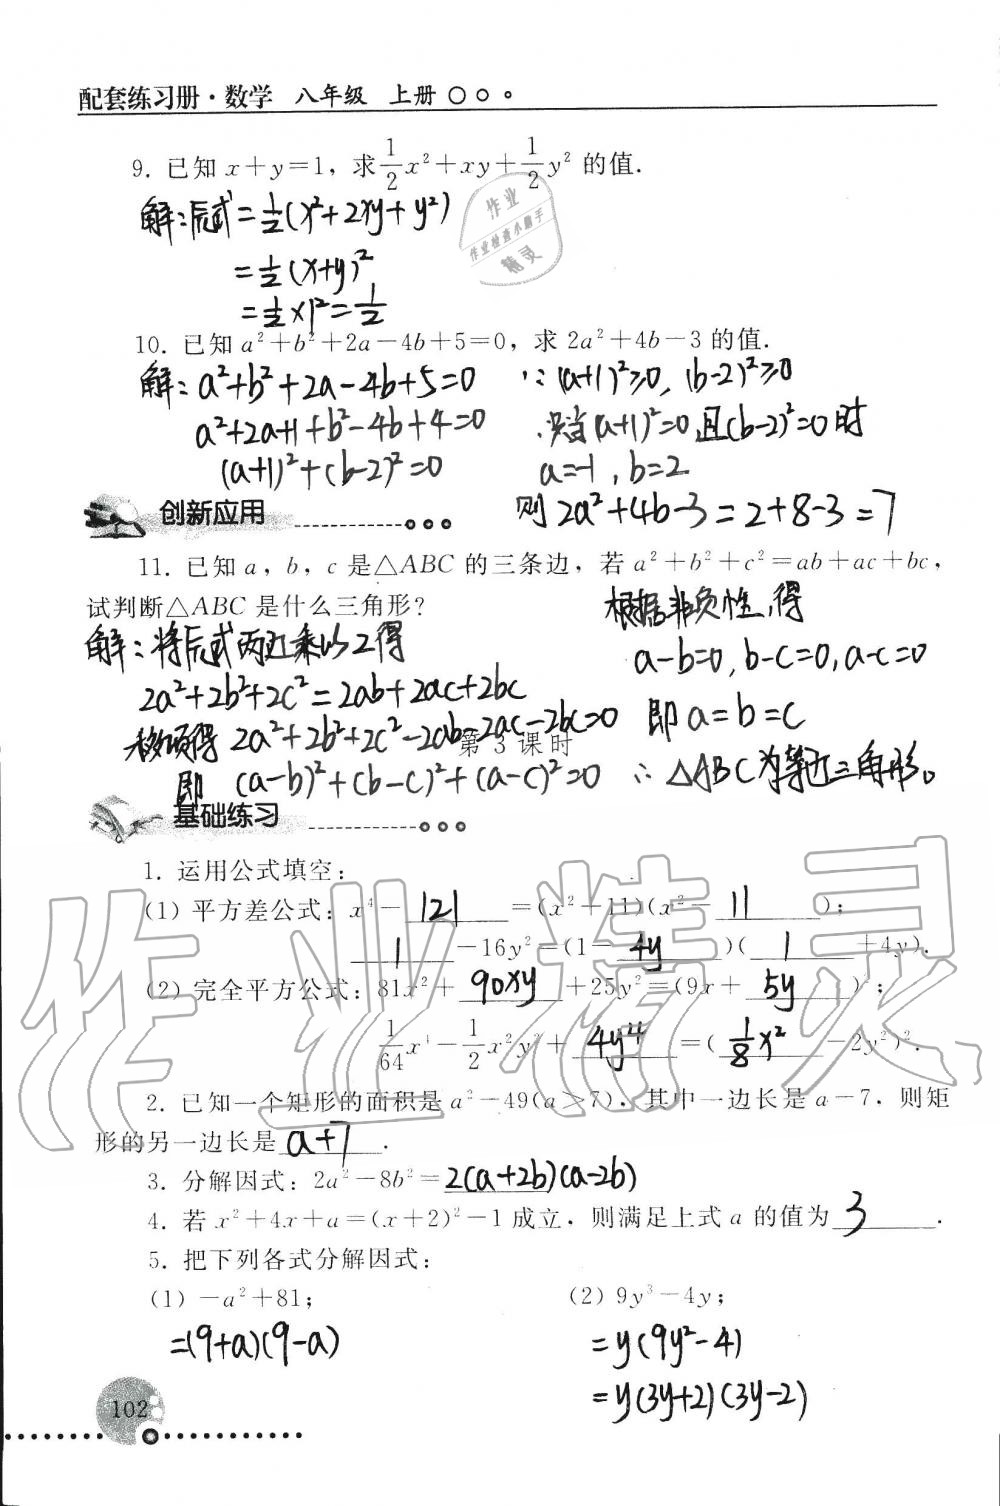 配套练习册·数学 八年级 上册
9. 已知 x+y=1，求 1/2 x²+xy+1/2 y² 的值.
解:原式=1/2(x²+2xy+y²)
=1/2(x+y)²
=1/2×1²=1/2
作业
作业检查小助手
精灵
10. 已知 a²+b²+2a-4b+5=0，求 2a²+4b-3 的值.
解:a²+b²+2a-4b+5=0
a²+2a+1+b²-4b+4=0
(a+1)²+(b-2)²=0
∵(a+1)²≥0, (b-2)²≥0
∴当(a+1)²=0且(b-2)²=0时
a=-1, b=2
则 2a²+4b-3=2+8-3=7
创新应用
11. 已知 a，b，c 是△ABC 的三条边，若 a²+b²+c²=ab+ac+bc，
试判断△ABC 是什么三角形?
解:将原式两边乘以2得
2a²+2b²+2c²=2ab+2ac+2bc
移项得 2a²+2b²+2c²-2ab-2ac-2bc=0
即 (a-b)²+(b-c)²+(a-c)²=0
根据非负性,得
a-b=0, b-c=0, a-c=0
即 a=b=c
∴△ABC为等边三角形。
第 3 课时
基础练习
1. 运用公式填空:
(1) 平方差公式: x⁴- 121 =(x²+11)(x²- 11 );
1 -16y²=(1- 4y )( 1 +4y).
(2) 完全平方公式: 81x²+ 90xy +25y²=(9x+ 5y )²;
1/64 x⁴-1/2 x²y²+ 4y⁴ =( 1/8 x² -2y²)².
2. 已知一个矩形的面积是 a²-49(a>7)，其中一边长是 a-7，则矩
形的另一边长是 a+7 .
3. 分解因式: 2a²-8b²= 2(a+2b)(a-2b)
4. 若 x²+4x+a=(x+2)²-1 成立，则满足上式 a 的值为 3 .
5. 把下列各式分解因式:
(1) -a²+81; (2) 9y³-4y;
=(9+a)(9-a) =y(9y²-4)
=y(3y+2)(3y-2)
102
作业精灵